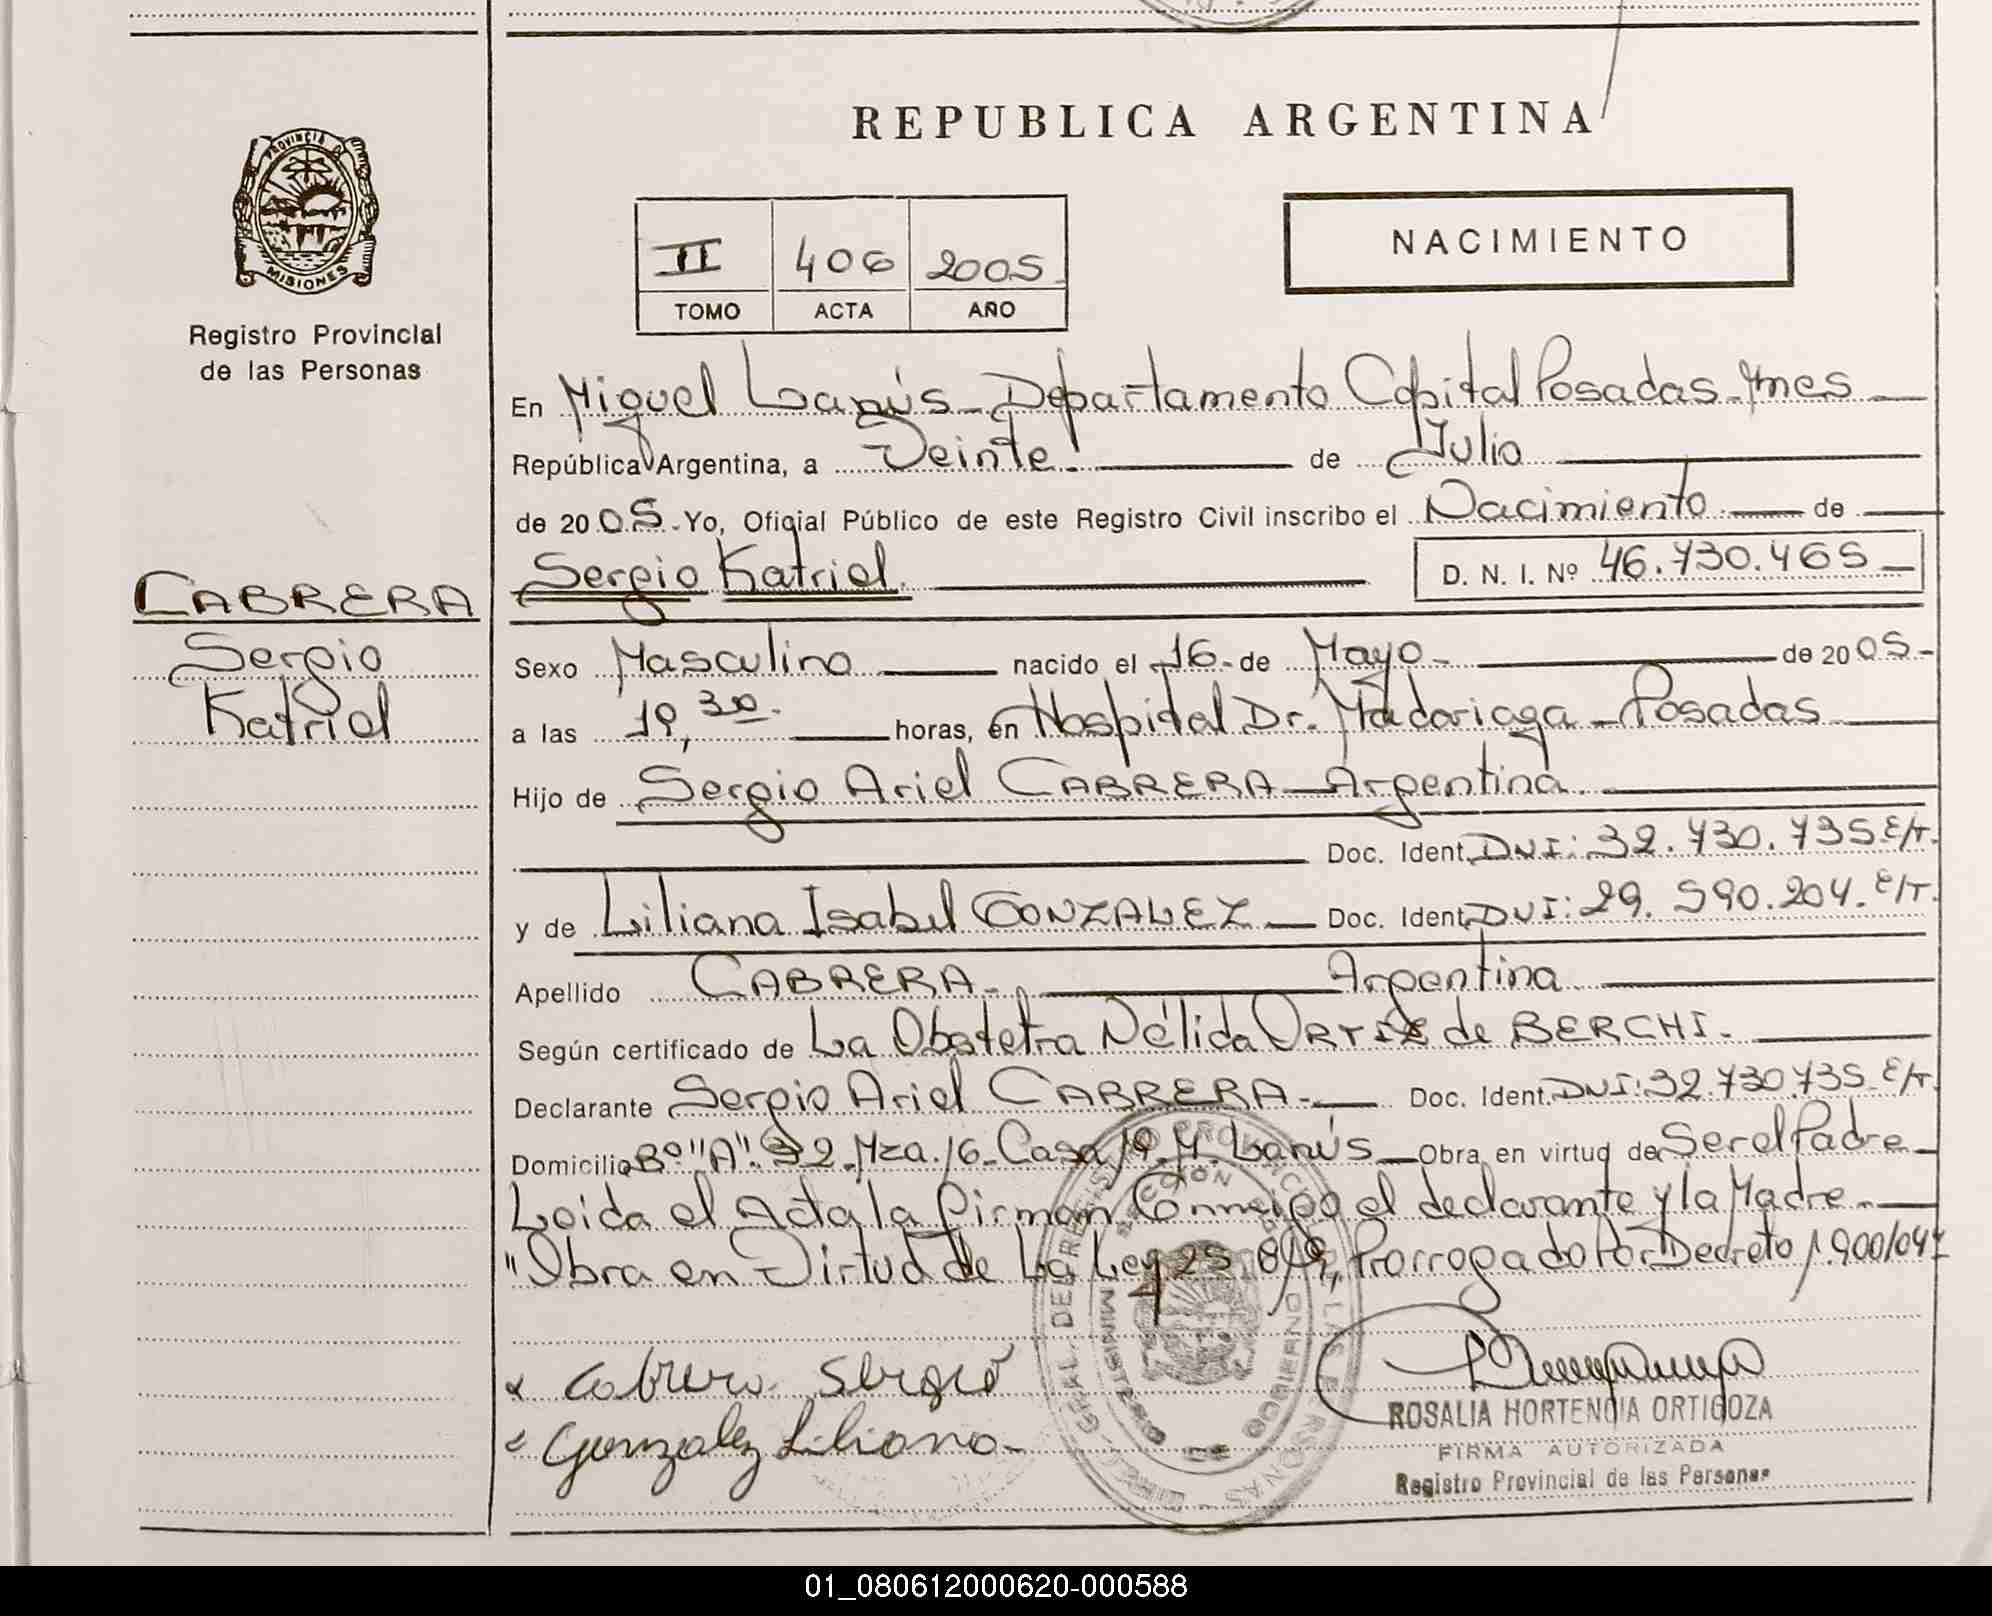 REPUBLICA ARGENTINA
PROVINCIA DE MISIONES
Registro Provincial
de las Personas
II 406 2005
TOMO ACTA AÑO
NACIMIENTO
En Miguel Lanús - Departamento Capital Posadas - Mnes
República Argentina, a Veinte. de Julio
de 2005 - Yo, Oficial Público de este Registro Civil inscribo el Nacimiento de
CABRERA
Sergio
Katriel
Sergio Katriel.
D. N. I. Nº 46.730.465
Sexo Masculino nacido el 16 - de Mayo - de 2005 -
a las 19,30 - horas, en Hospital Dr. Madariaga - Posadas
Hijo de Sergio Ariel CABRERA - Argentina.
Doc. Ident. DNI: 32.730.735 E/T.
y de Liliana Isabel GONZALEZ - Doc. Ident. DNI: 29.590.204. E/T.
Apellido CABRERA - Argentina
Según certificado de La Obstetra Nélida ORTIZ de BERCHI.
Declarante Sergio Ariel CABRERA - Doc. Ident. DNI: 32.730.735 E/T.
Domicilio Bº "A" 32 - Mza. 16 - Casa 19 - M. Lanús - Obra en virtud de Ser el Padre
Leida el Acta la firman Conmigo el declarante y la Madre -
"Obra en Virtud de La Ley 25.819, Prorrogado Por Decreto 1.900/04"
Cabrera Sergio
Gonzalez Liliana -
ROSALIA HORTENCIA ORTIGOZA
FIRMA AUTORIZADA
Registro Provincial de las Personas
01_080612000620-000588